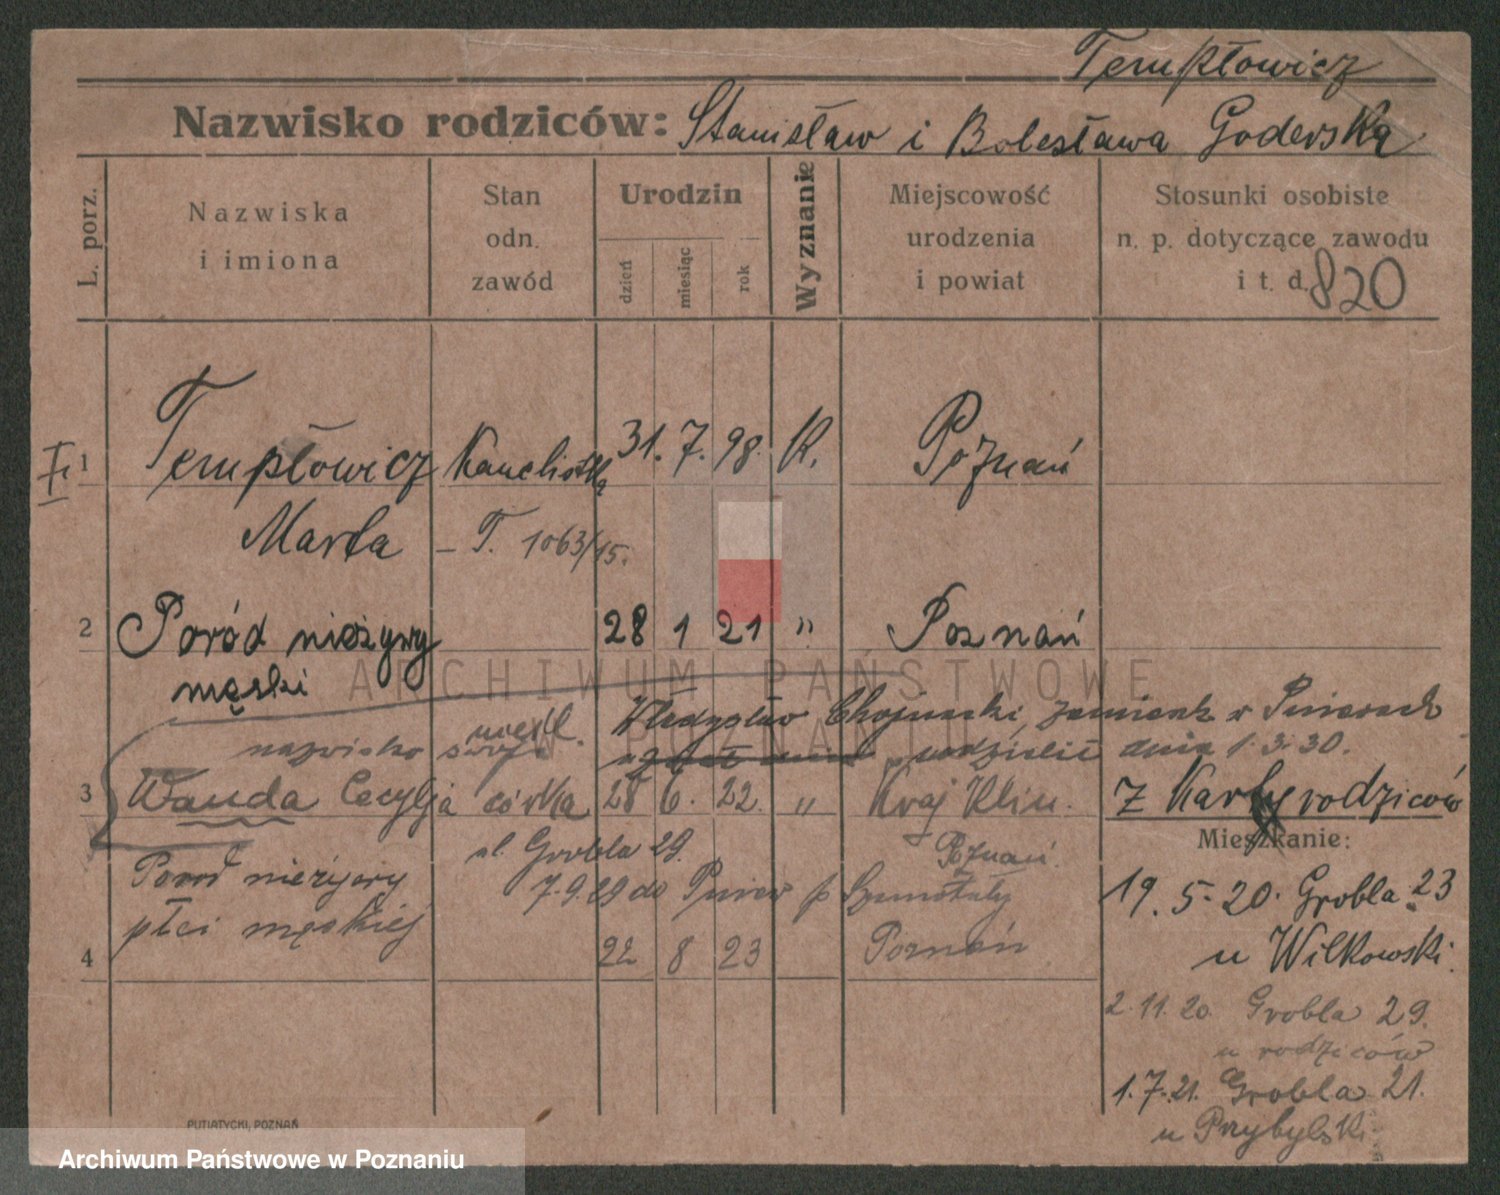 Templowicz
Nazwisko rodziców: Stanisław i Bolesława Goderska
L. porz.
Nazwiska
i imiona
Stan
odn.
zawód
Urodzin
dzień
miesiąc
rok
Wyznanie
Miejscowość
urodzenia
i powiat
Stosunki osobiste
n. p. dotyczące zawodu
i t. d. 820
1 Templowicz 31. 7. 98. K. Poznań
Marta – T. 1063/15.
2 Poród nieżywy 28 1 21 " Poznań
męski
ARCHIWUM PAŃSTWOWE
W POZNANIU
Władysław Chojnacki, zamieszk w
nazwisko swoje udzielił dnia 1.3.30.
3 Wanda Cecylja córka 28 6. 22. "
Z Karty rodziców
Mieszkanie:
ul. Grobla 29. Poznań.
7.9.29 do Pniew p Szamotuły
Poród nieżywy
płci męskiej
4 22 8 23 Poznań
19.5.20. Grobla 23
u Wilkowski.
2.11.20. Grobla 29.
u rodziców
1.7.21. Grobla 21.
u Przybylski
PUTIATYCKI, POZNAŃ
Archiwum Państwowe w Poznaniu